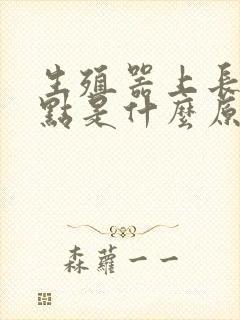 生殖器上長
點是什麼原
森蘿一一